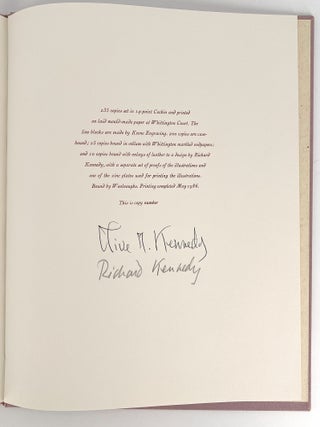 235 copies set in 14-point Cochin and printed
on laid mould-made paper at Whittington Court. The
line blocks are made by Keene Engraving. 200 copies are case-
bound; 25 copies bound in vellum with Whittington marbled endpapers;
and 10 copies bound with onlays of leather to a design by Richard
Kennedy, with a separate set of proofs of the illustrations and
one of the zinc plates used for printing the illustrations.
Bound by Woolnoughs. Printing completed May 1986.
This is copy number
Olive M. Kennedy
Richard Kennedy